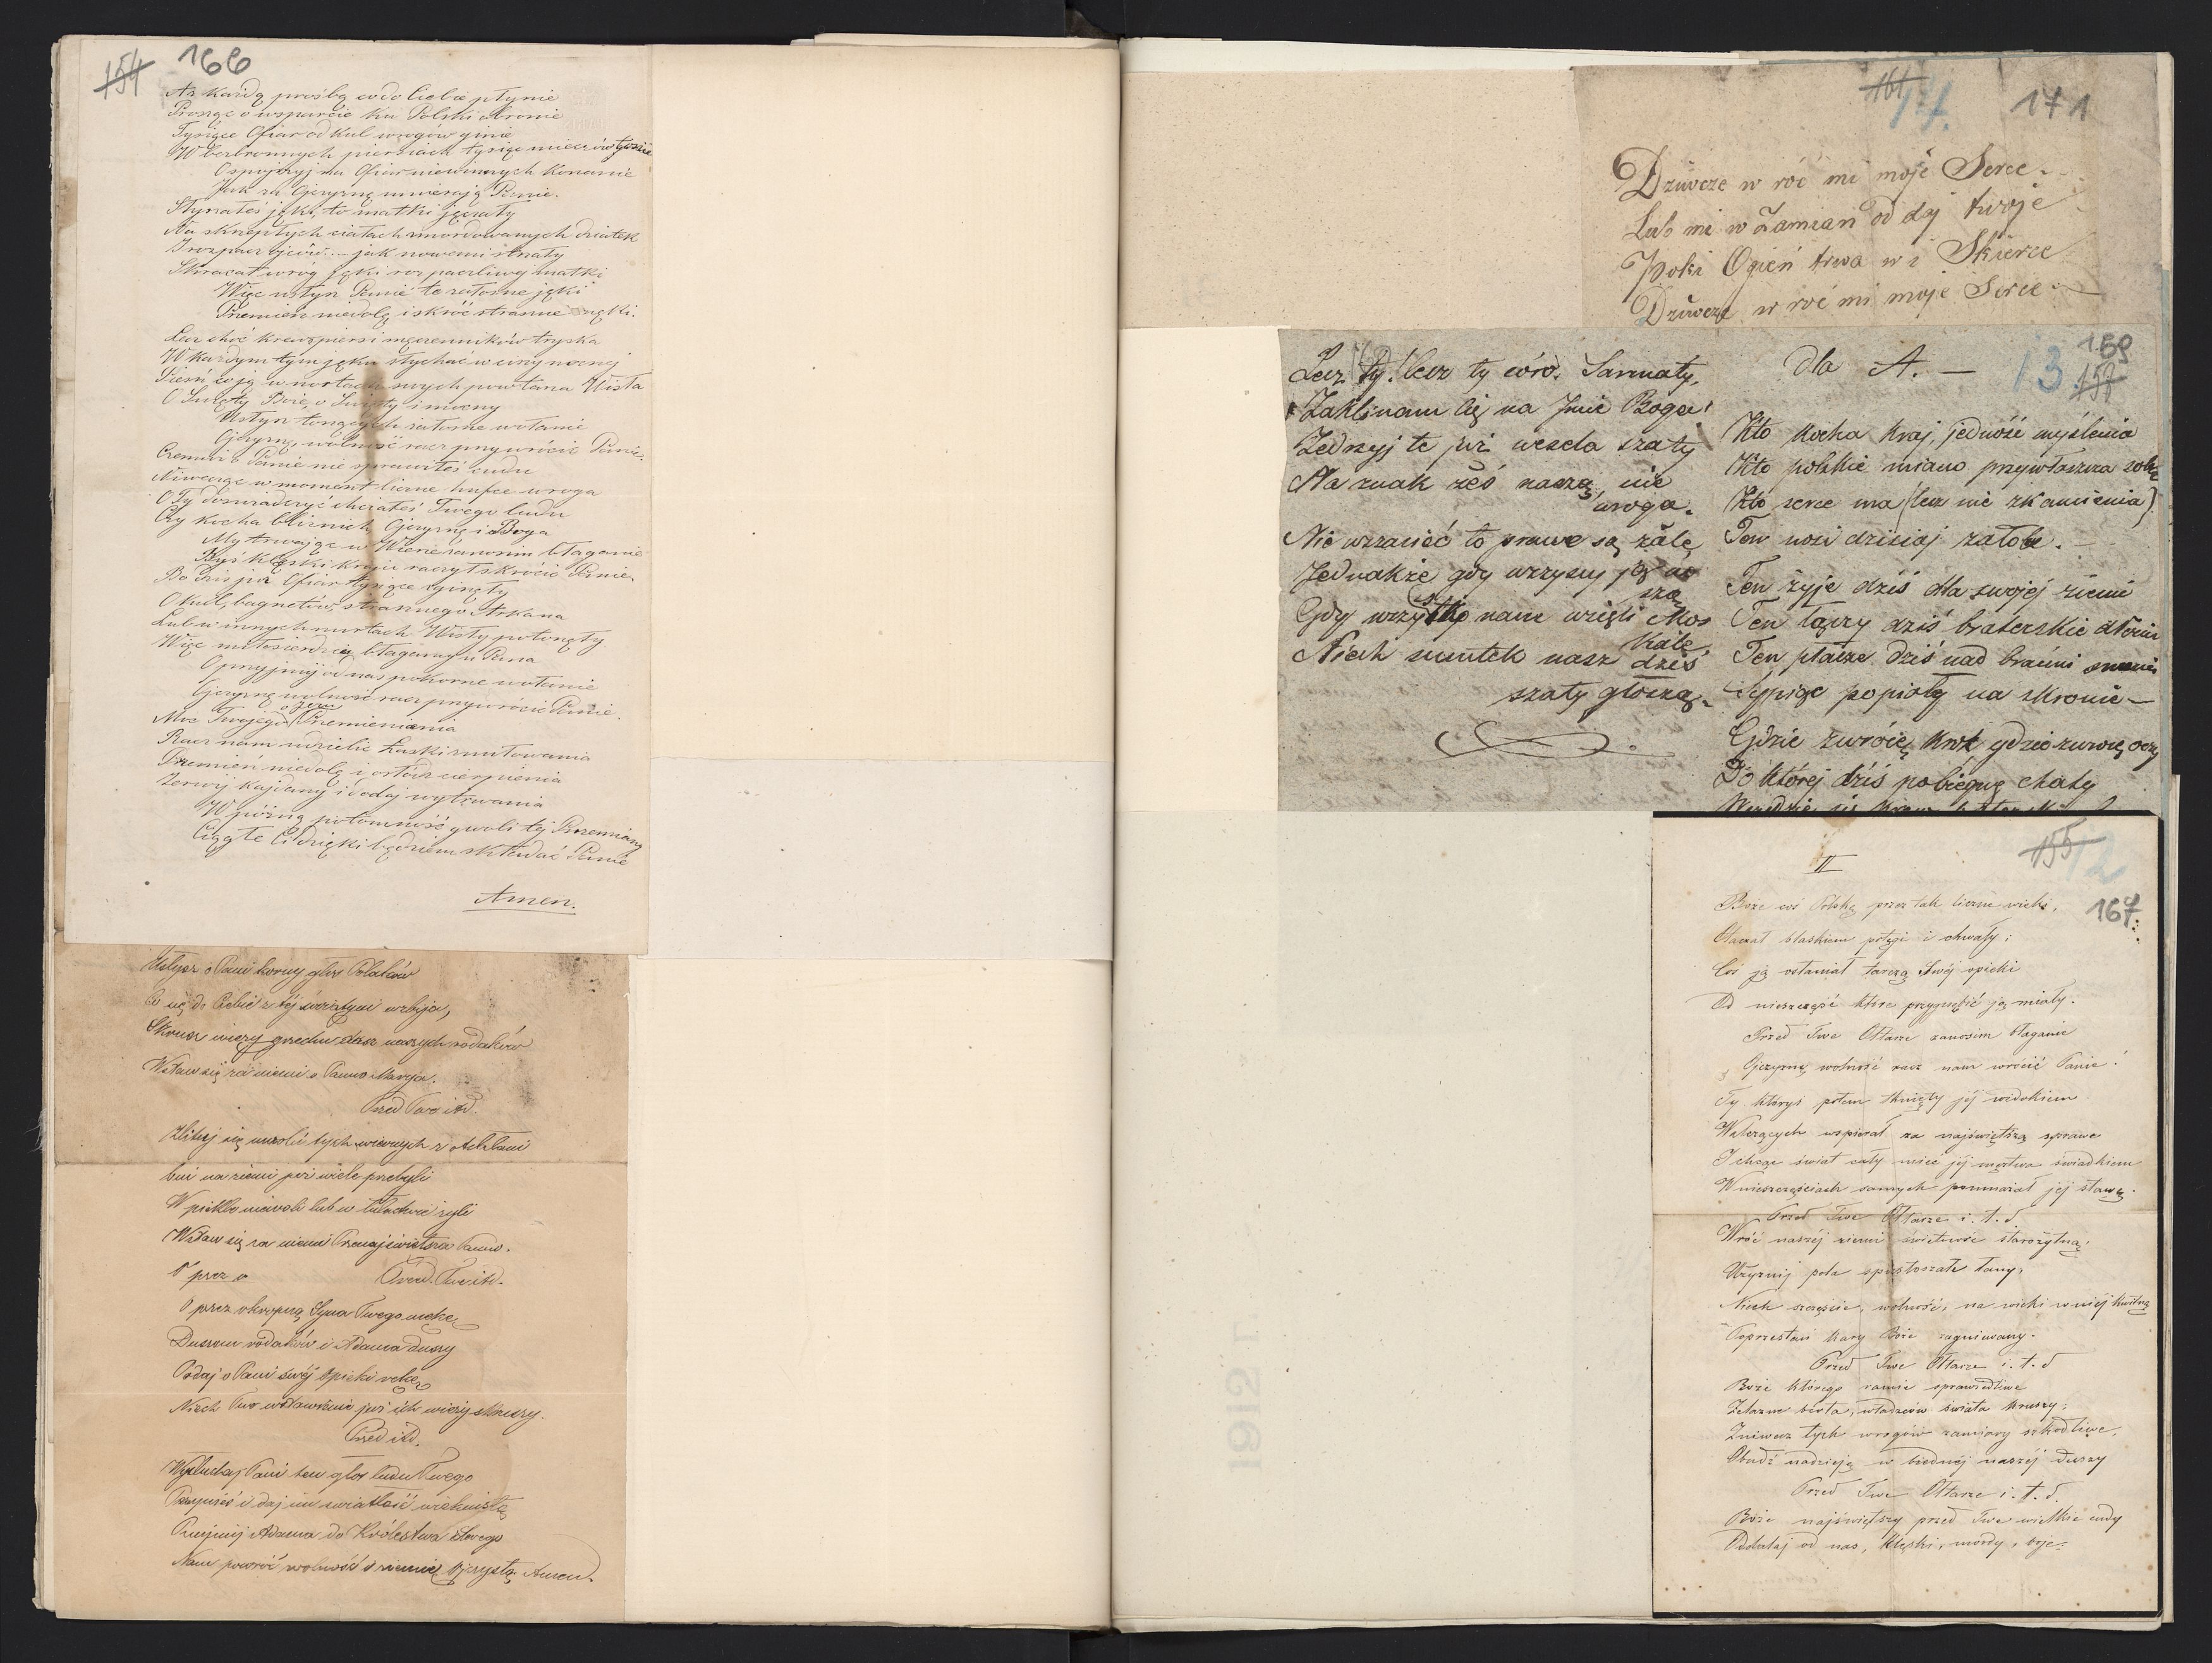 154 166
Az każdą prośbą co do Ciebie płynie
Prosząc o wsparcie ku Polski obronie
Tysiące Ofiar od kul wrogów ginie
W bezbronnych piersiach tysiąc mieczów tonie
O spojrzyj na Ofiar niewinnych konanie
Jak za Ojczyznę umierają Panie.
Słyszałeś jęki, to matki jęczały
Na skrzepłych ciałach mordowanych dziatek
I rozpacz ojców... jak nowemi strzały
Skracał wróg jęki rozpaczliwej matki
Więc usłysz Panie te żałosne jęki
Przemień niedolę i skróć straszne męki.
Lecz choć krew z piersi męczenników tryska
W każdym tym jęku słychać w ciszy nocnej
Pieśń co ją w nurtach swych powtarza Wisła
O Święty Boże, o Święty i mocny
Usłysz tonących żałosne wołanie
Ojczyznę wolność racz przywrócić Panie.
Czemuż o Panie nie sprawiłeś cudu
Niwecząc w moment liczne hufce wroga
O Ty doświadczyć chciałeś Twego ludu
Czy kocha bliźnich, Ojczyznę i Boga
My trwając w Wierze zanosim błaganie
Byś klęski kraju raczył skrócić Panie.
Bo dziś już Ofiar tysiące zginęły
O kul, bagnetów, strasznego Arkana
Lub w innych nurtach Wisły potonęły
Więc miłosierdzia błagamy u Pana
O przyjmij od nas pokorne wołanie
Ojczyznę wolność racz przywrócić Panie.
Moc Twojego Przemienienia
Racz nam udzielić Łaski zmiłowania
Przemień niedolę i osłódź cierpienia
Zerwij kajdany i dodaj wytrwania
W późną potomność gwoli tej Przemiany
Ciągle Ci dzięki będziem składać Panie
Amen.
Usłysz o Pani korny głos Polaków
Co się do Ciebie z tej świątyni wzbija,
Skrusz więzy grzechu dusz naszych rodaków
Wstaw się za niemi o Panno Maryja.
Przed Twe itd.
Zlituj się murolić tych wiernych z Achłani
bui na ziemi już wiele przebyli
W piekle niewoli lub w tułactwie żyli
Wstaw się za niemi Przenajświętsza Panno.
O prez o Przed. Twe itd.
O przez okropną Syna Twego mękę
Duszom rodaków i Adama duszy
Podaj o Pani swej Opieki rękę
Niech Twe wstawienie już ich więzy skruszy.
Przed itd.
Wysłuchaj Pani ten głos ludu Twego
Przynieś i daj im światłość wiekuistą
Przyjmij Adama do Królestwa Swego
Nam powróć wolność i ziemię Ojczystą. Amen.
161 17. 171
Dziwcze w róć mi moje Serce.
Lub mi w Zamian od dy twoje
Poki Ogień trwa w i Skierce
Dziwcze w róć mi moje Serce
Lecz ty! lecz ty córo Sarmaty,
Zaklinam Cię na Imie Boga!
Zedrzyj te już wesela szaty
Na znak żeś naszą, nie
wroga.
Nie wzranieć to prawe są żale
Jednakże gdy wszyscy ją no
szą
Gdy wszystko nam wzięli Mos
kale,
Niech smutek nasz dziś
szaty głoszą.
dla A. — 13. 159
158
Kto kocha kraj, jedność myślenia
Kto polskie miano przywłaszcza sobie
Kto serce ma (lecz nie z kamienia)
Ten nosi dzisiaj żałobe.
Ten żyje dziś dla swojej ziemi
Ten łączy dziś braterskie dłonie
Ten płacze dziś nad braćmi swemi
Sypiąc popioły na skronie —
Gdzie zwrócę krok gdzie zwrócę oczy
Do której dziś pobiegnę chaty
II
155 12
167
Boże coś Polskę przez tak liczne wieki,
Otaczał blaskiem potęgi i chwały;
Coś ją osłaniał tarczą Swéj opieki
Od nieszczęść które przygnębić ją miały.
Przed Twe Ołtarze zanosim błaganie
Ojczyznę wolność racz nam wrócić Panie!
Ty któryś potem tknięty jéj widokiem
Walczących wspierał za najświętszą sprawe
I chcąc świat cały mieć jéj męstwa świadkiem
W nieszczęściach samych pomnażał jej sławę.
Przed Twe Ołtarze i.t.d
Wróć naszéj ziemi świetność starożytną;
Użyźnij pola spustoszałe łany,
Niech szczęście, wolność, na wieki w niéj kwitną
Poprzestań kary Boże zagniewany.
Przed Twe Ołtarze i.t.d
Boże którego ramie sprawiedliwe
Żelazne berła, władzców świata kruszy;
Zniwecz tych wrogów zamiary szkodliwe,
Obudź nadzieję w biednéj naszéj duszy
Przed Twe Ołtarze i.t.d.
Boże najświętszy przed Twe wielkie cudy
Oddalaj od nas, klęski, mordy, boje.